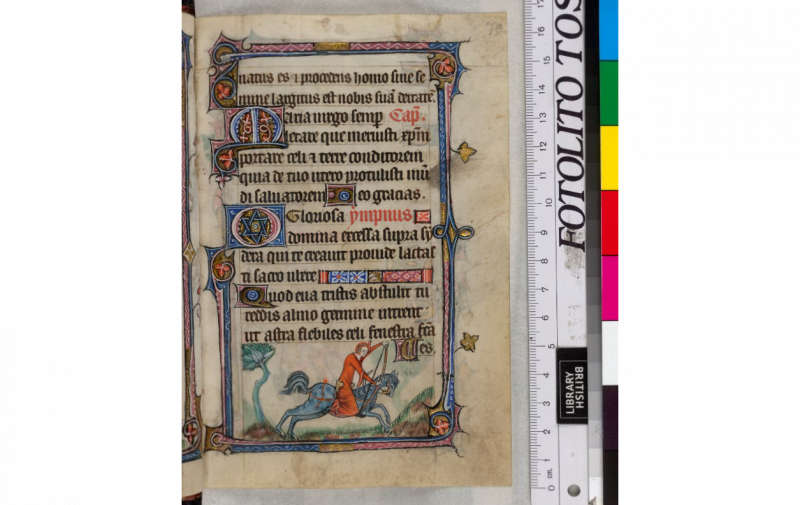 79
natus es ⁊ procedens homo sine se
mine largitus est nobis suā deitatē.
Maria uirgo semp Cap̄.
letare que meruisti xp̄m
portare celi ⁊ terre conditorem
quia de tuo utero protulisti mū
di saluatorem Deo gracias.
Gloriosa ympnus
domina excelsa supra sy
dera qui te creauit prouide lactas
ti sacro ubere
Quod eua tristis abstulit tu
reddis almo germine intrent
ut astra flebiles celi fenestra fc̄a
es.
FOTOLITO TOS
LIBRARY
BRITISH
0 cm. 1 2 3 4 5 6 7 8 9 10 11 12 13 14 15 16 17